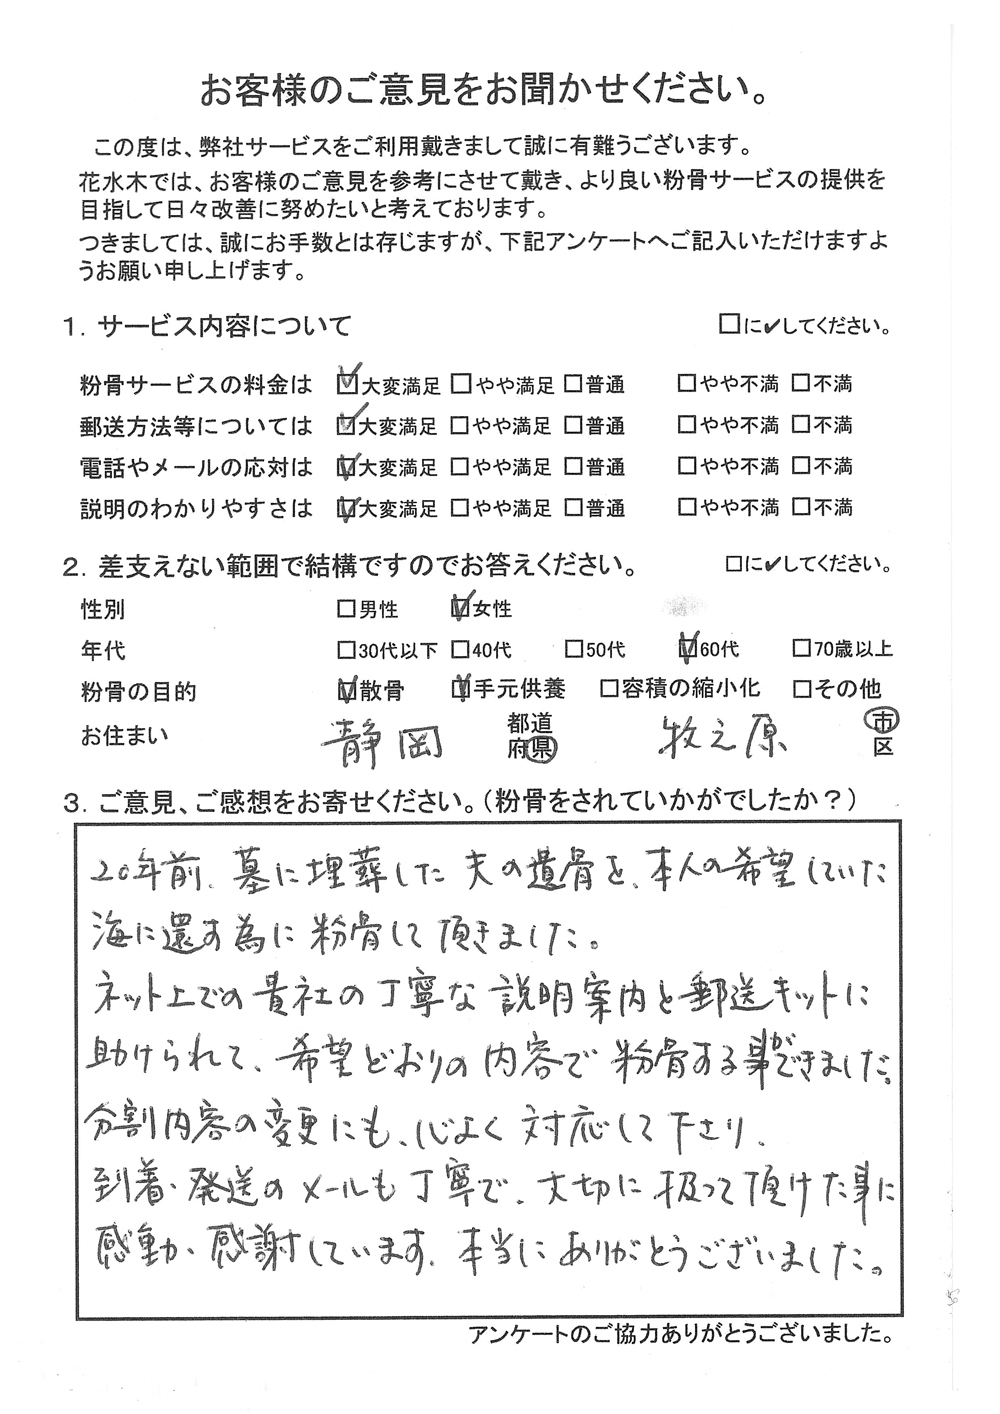 お客様のご意見をお聞かせください。
この度は、弊社サービスをご利用戴きまして誠に有難うございます。
花水木では、お客様のご意見を参考にさせて戴き、より良い粉骨サービスの提供を
目指して日々改善に努めたいと考えております。
つきましては、誠にお手数とは存じますが、下記アンケートへご記入いただけますよ
うお願い申し上げます。
１．サービス内容について　□に✔してください。
粉骨サービスの料金は　☑大変満足 □やや満足 □普通　□やや不満 □不満
郵送方法等については　☑大変満足 □やや満足 □普通　□やや不満 □不満
電話やメールの応対は　☑大変満足 □やや満足 □普通　□やや不満 □不満
説明のわかりやすさは　☑大変満足 □やや満足 □普通　□やや不満 □不満
２．差支えない範囲で結構ですのでお答えください。　□に✔してください。
性別　□男性 ☑女性
年代　□30代以下 □40代　□50代　☑60代　□70歳以上
粉骨の目的　☑散骨　☑手元供養　□容積の縮小化　□その他
お住まい　静岡　都道府県　牧之原　市区
３．ご意見、ご感想をお寄せください。（粉骨をされていかがでしたか？）
20年前、墓に埋葬した夫の遺骨を、本人の希望していた
海に還す為に粉骨して頂きました。
ネット上での貴社の丁寧な説明案内と郵送キットに
助けられて、希望どおりの内容で粉骨する事ができました。
分割内容の変更にも、心よく対応して下さり、
到着・発送のメールも丁寧で、大切に扱って頂けた事に
感動・感謝しています。本当にありがとうございました。
アンケートのご協力ありがとうございました。